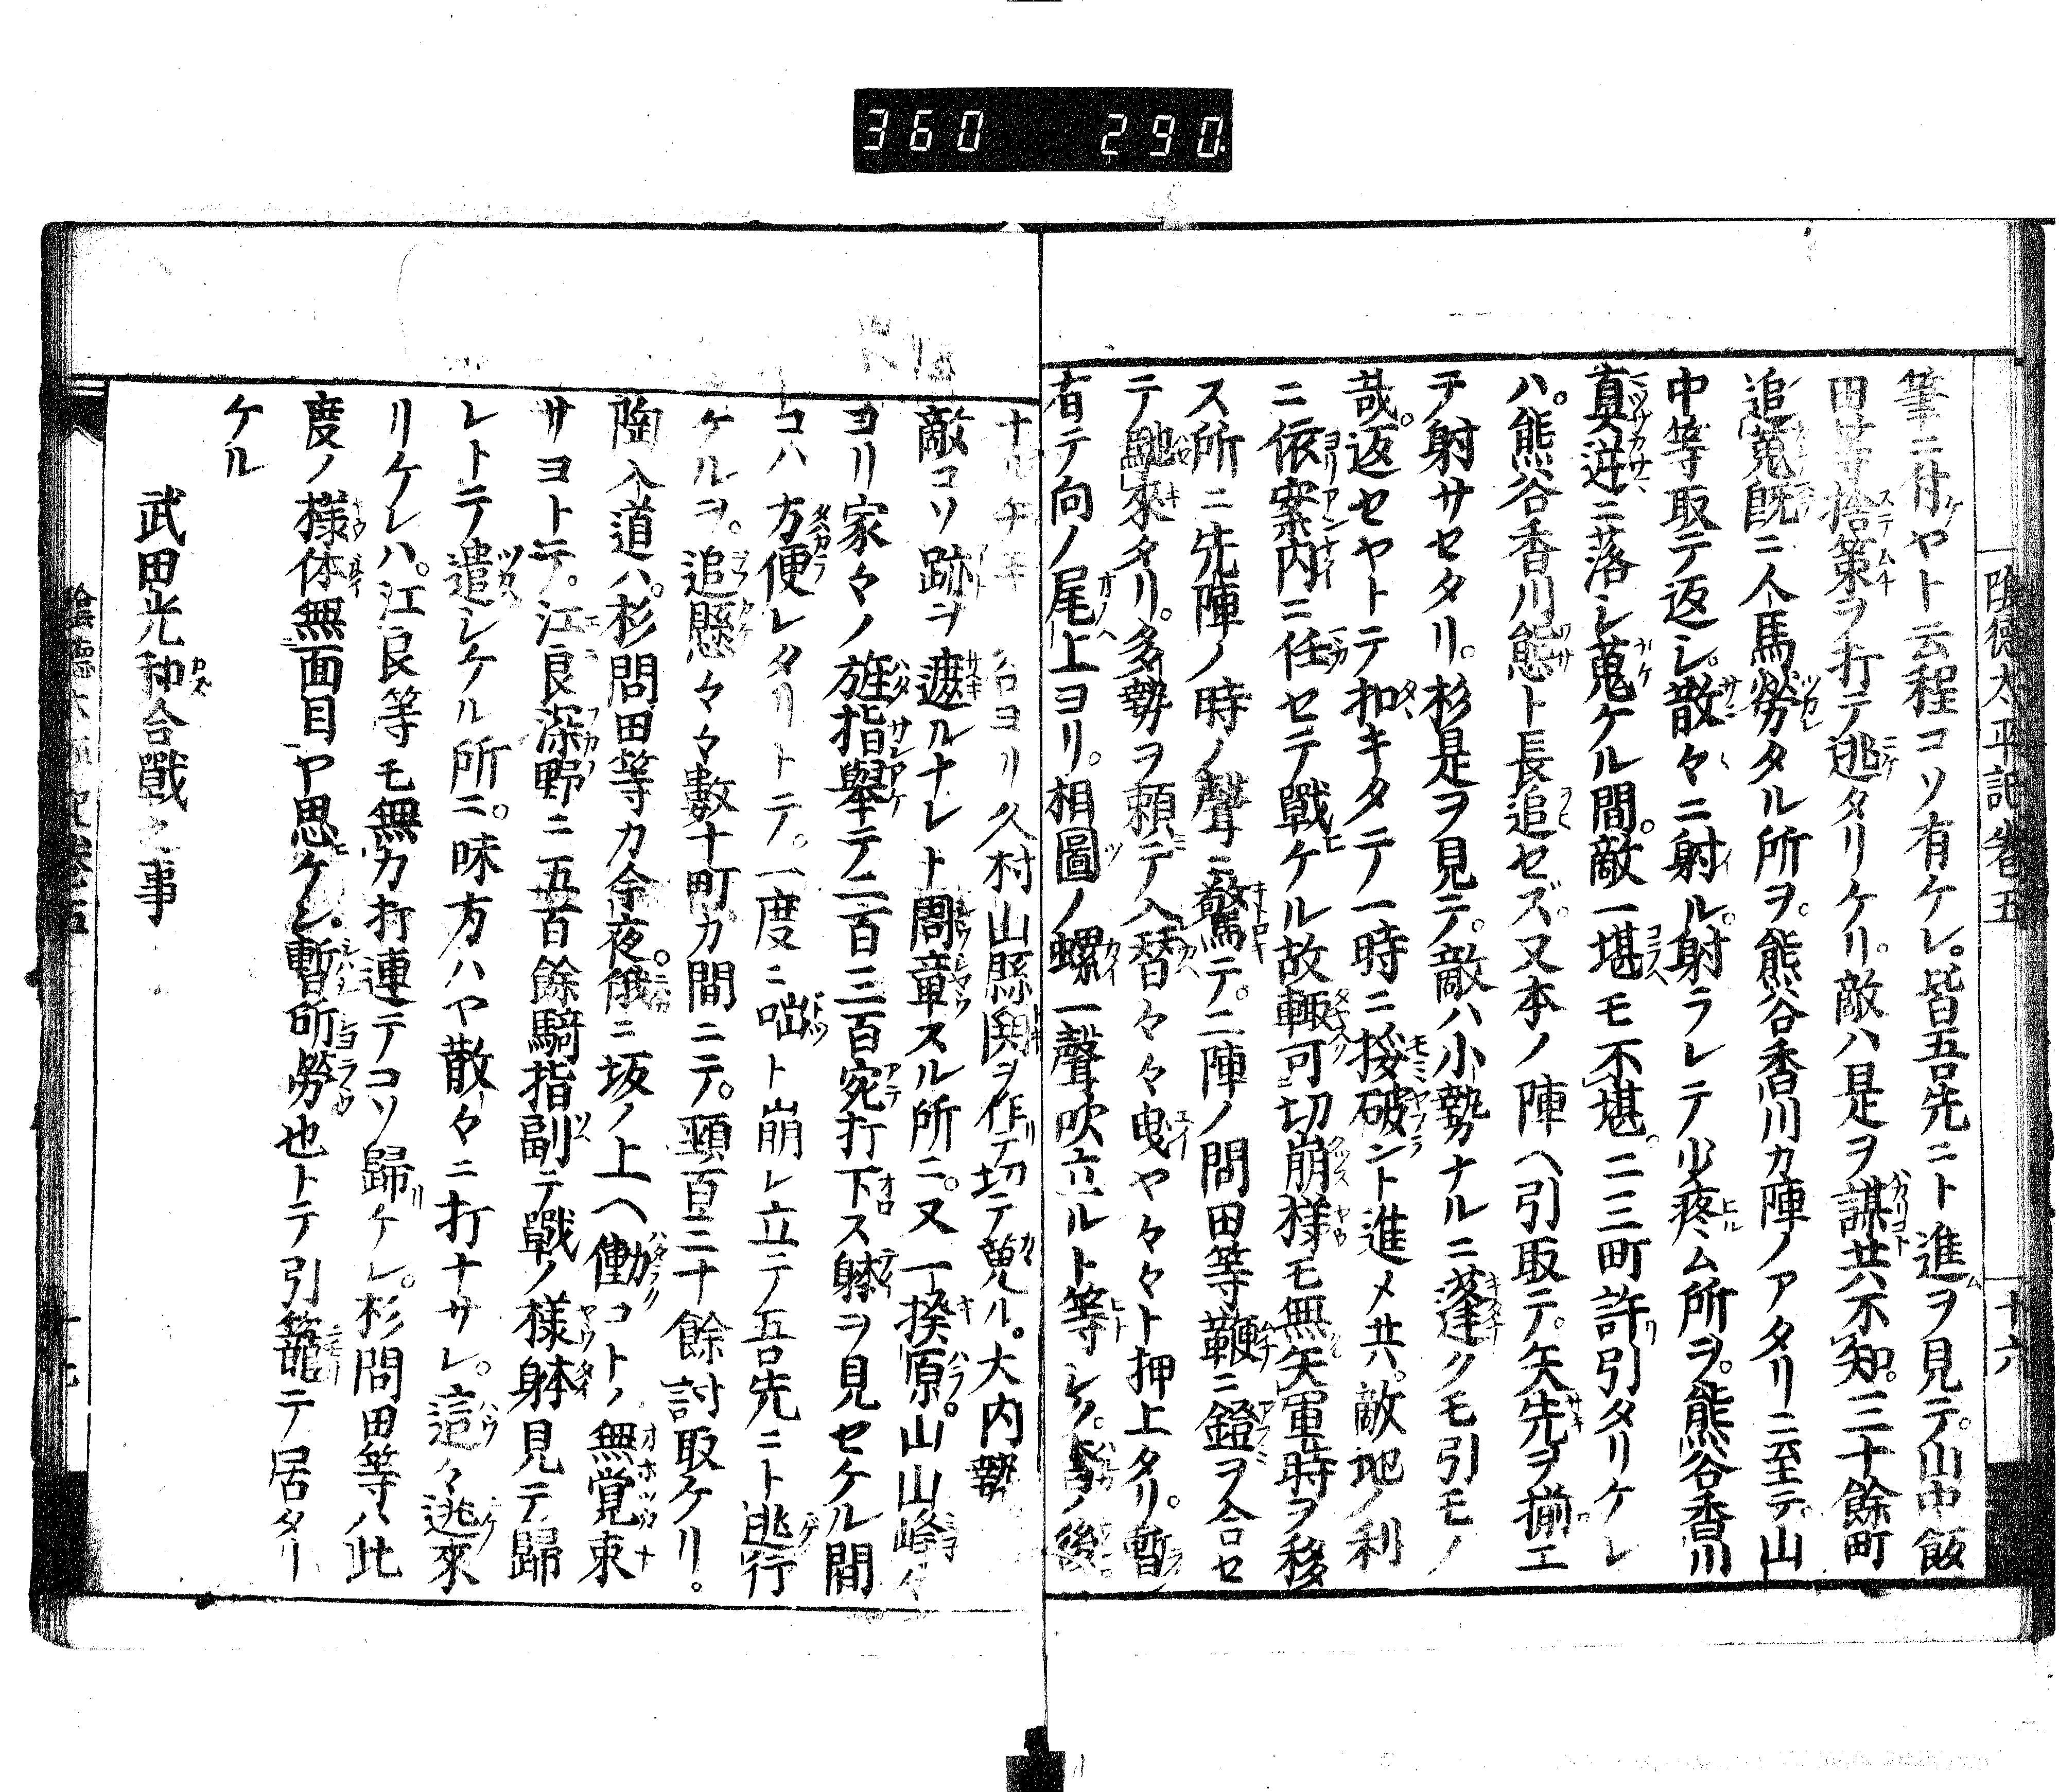 360 290
陰徳太平記巻五 十六
筆ニ付ヤト云程コソ有ケレ。皆吾先ニト進ヲ見テ。山中飯
田等捨策ヲ打テ逃タリケリ。敵ハ是ヲ謀共不知。三十餘町
追蒐既ニ人馬勞タル所ヲ。熊谷香川カ陣ノアタリニ至テ。山
中等取テ返シ。散々ニ射ル。射ラレテ少疼ム所ヲ。熊谷香川
真逆ニ落シ蒐ケル間。敵一堪モ不堪。二三町許引タリケレ
ハ。熊谷香川態ト長追セズ。又本ノ陣ヘ引取テ。矢先ヲ揃エ
テ射サセタリ。杉是ヲ見テ。敵ハ小勢ナルニ蓬クモ引モノ
哉。返セヤトテ扣キタテ一時ニ挼破ント進メ共。敵地ノ利
ニ依案内ニ任セテ戰ケル故輙可切崩様モ無。矢軍時ヲ移
ス所ニ先陣ノ時ノ聲ニ驚テ。二陣ノ問田等鞭ニ鐙ヲ合セ
テ馳來タリ。多勢ヲ頼テ入替々々曳ヤ々々ト押上タリ。暫
有テ向ノ尾上ヨリ。相圖ノ螺一聲吹立ルト等シク。敵ノ後
ナル ヨリ久村山縣輿ヲ作テ切テ蒐ル。大内勢
敵コソ跡ヲ遮ルナレト周章スル所ニ。又一揆原。山山峰々
ヨリ家々ノ旌指擧テ二百三百宛打下ス躰ヲ見セケル間
コハ方便レタリトテ。一度ニ咄ト崩レ立テ吾先ニト逃行
ケルヲ。追懸々々數十町カ間ニテ。頸百三十餘討取ケリ。
陶入道ハ。杉問田等カ今夜。俄ニ坂ノ上ヘ働コトノ無覚束
サヨトテ。江良深野ニ五百餘騎指副テ戰ノ様躰見テ歸
レトテ遣シケル所ニ。味方ハヤ散々ニ打ナサレ。這々逃來
リケレハ。江良等モ無力打連テコソ歸ケレ。杉問田等ハ此
度ノ様体無面目ヤ思ケン。暫所勞也トテ引籠テ居タリ
ケル
武田光和合戰之事